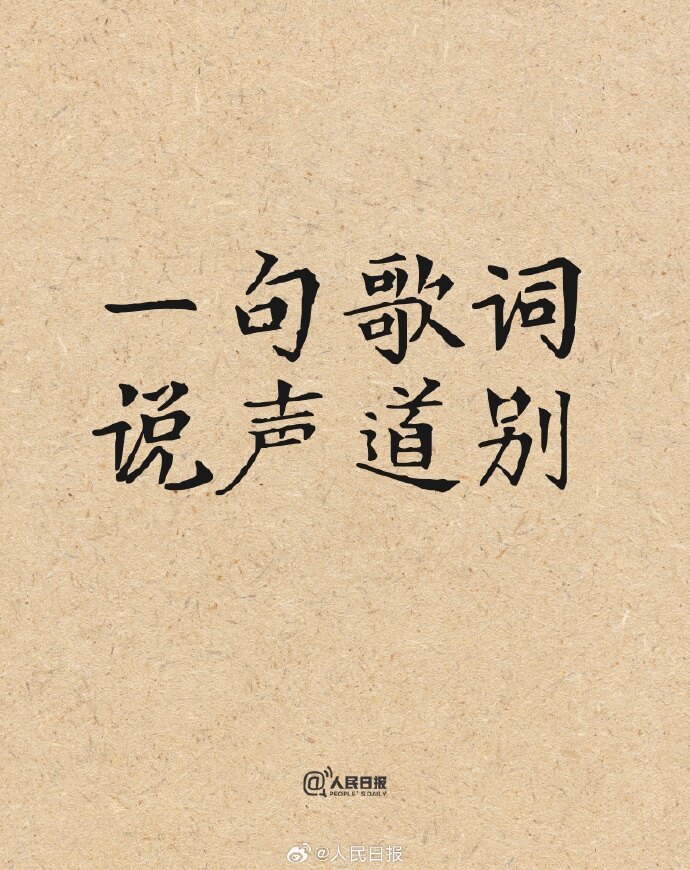 一句歌词
说声道别
@人民日报
PEOPLE'S DAILY
@人民日报